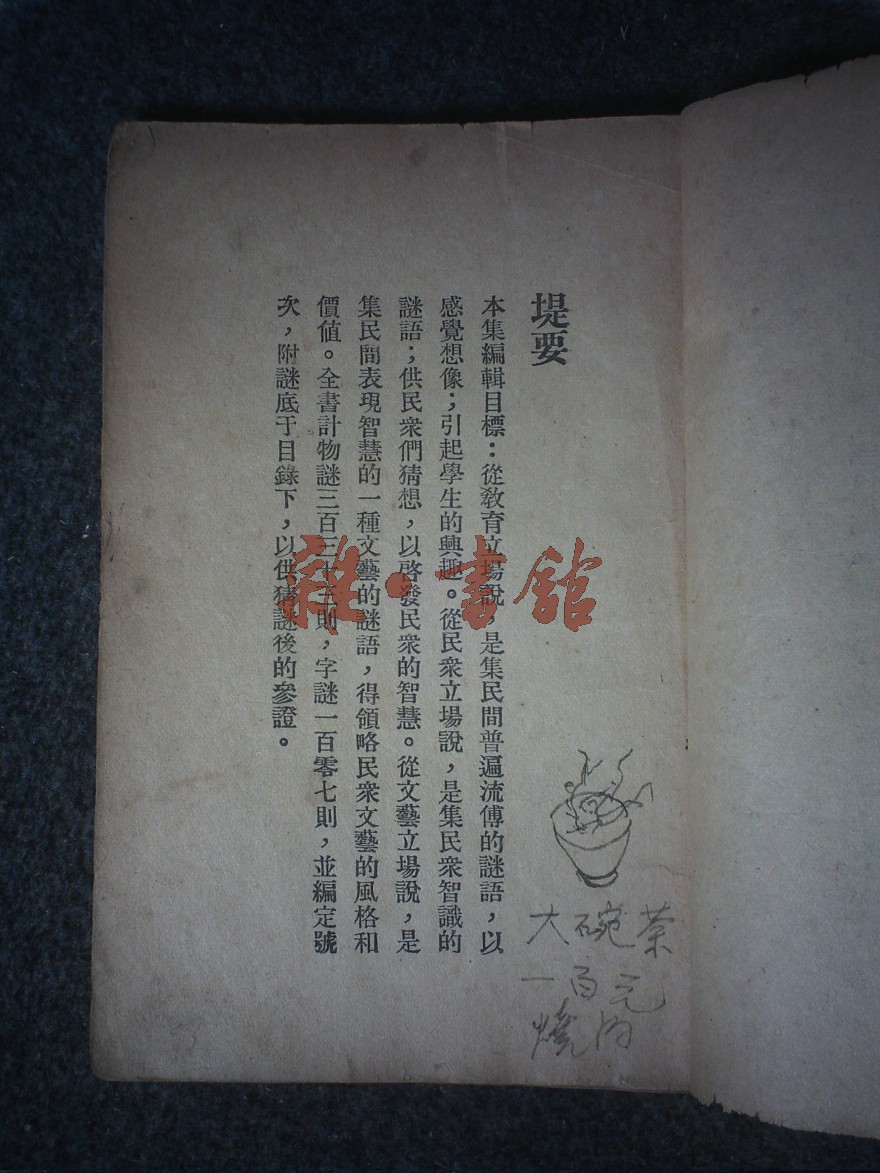 堤要
本集編輯目標：從教育立場說，是集民間普遍流傳的謎語，以
感覺想像；引起學生的興趣。從民衆立場說，是集民衆智識的
謎語；供民衆們猜想，以啓發民衆的智慧。從文藝立場說，是
集民間表現智慧的一種文藝的謎語，得領略民衆文藝的風格和
價值。全書計物謎三百三十三則，字謎一百零七則，並編定號
次，附謎底于目錄下，以供猜謎後的參證。
大碗茶
一百元
燒
雜·書館